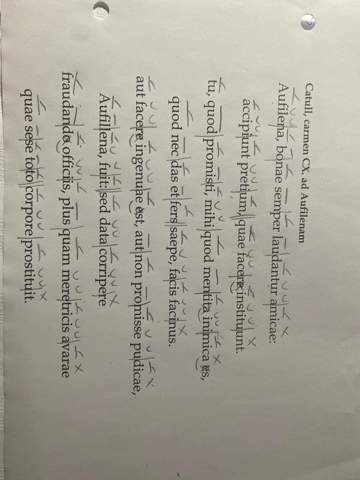 Catull, carmen CX, ad Aufilenam
Aufilena, bonae semper laudantur amicae:
accipiunt pretium, quae facere instituunt.
tu, quod promisti, mihi quod mentita inimica es,
quod nec das et fers saepe, facis facinus.
aut facere ingenuae est, aut non promisse pudicae,
Aufillena, fuit: sed data corripere
fraudando officiis, plus quam meretricis avarae
quae sese toto corpore prostituit.